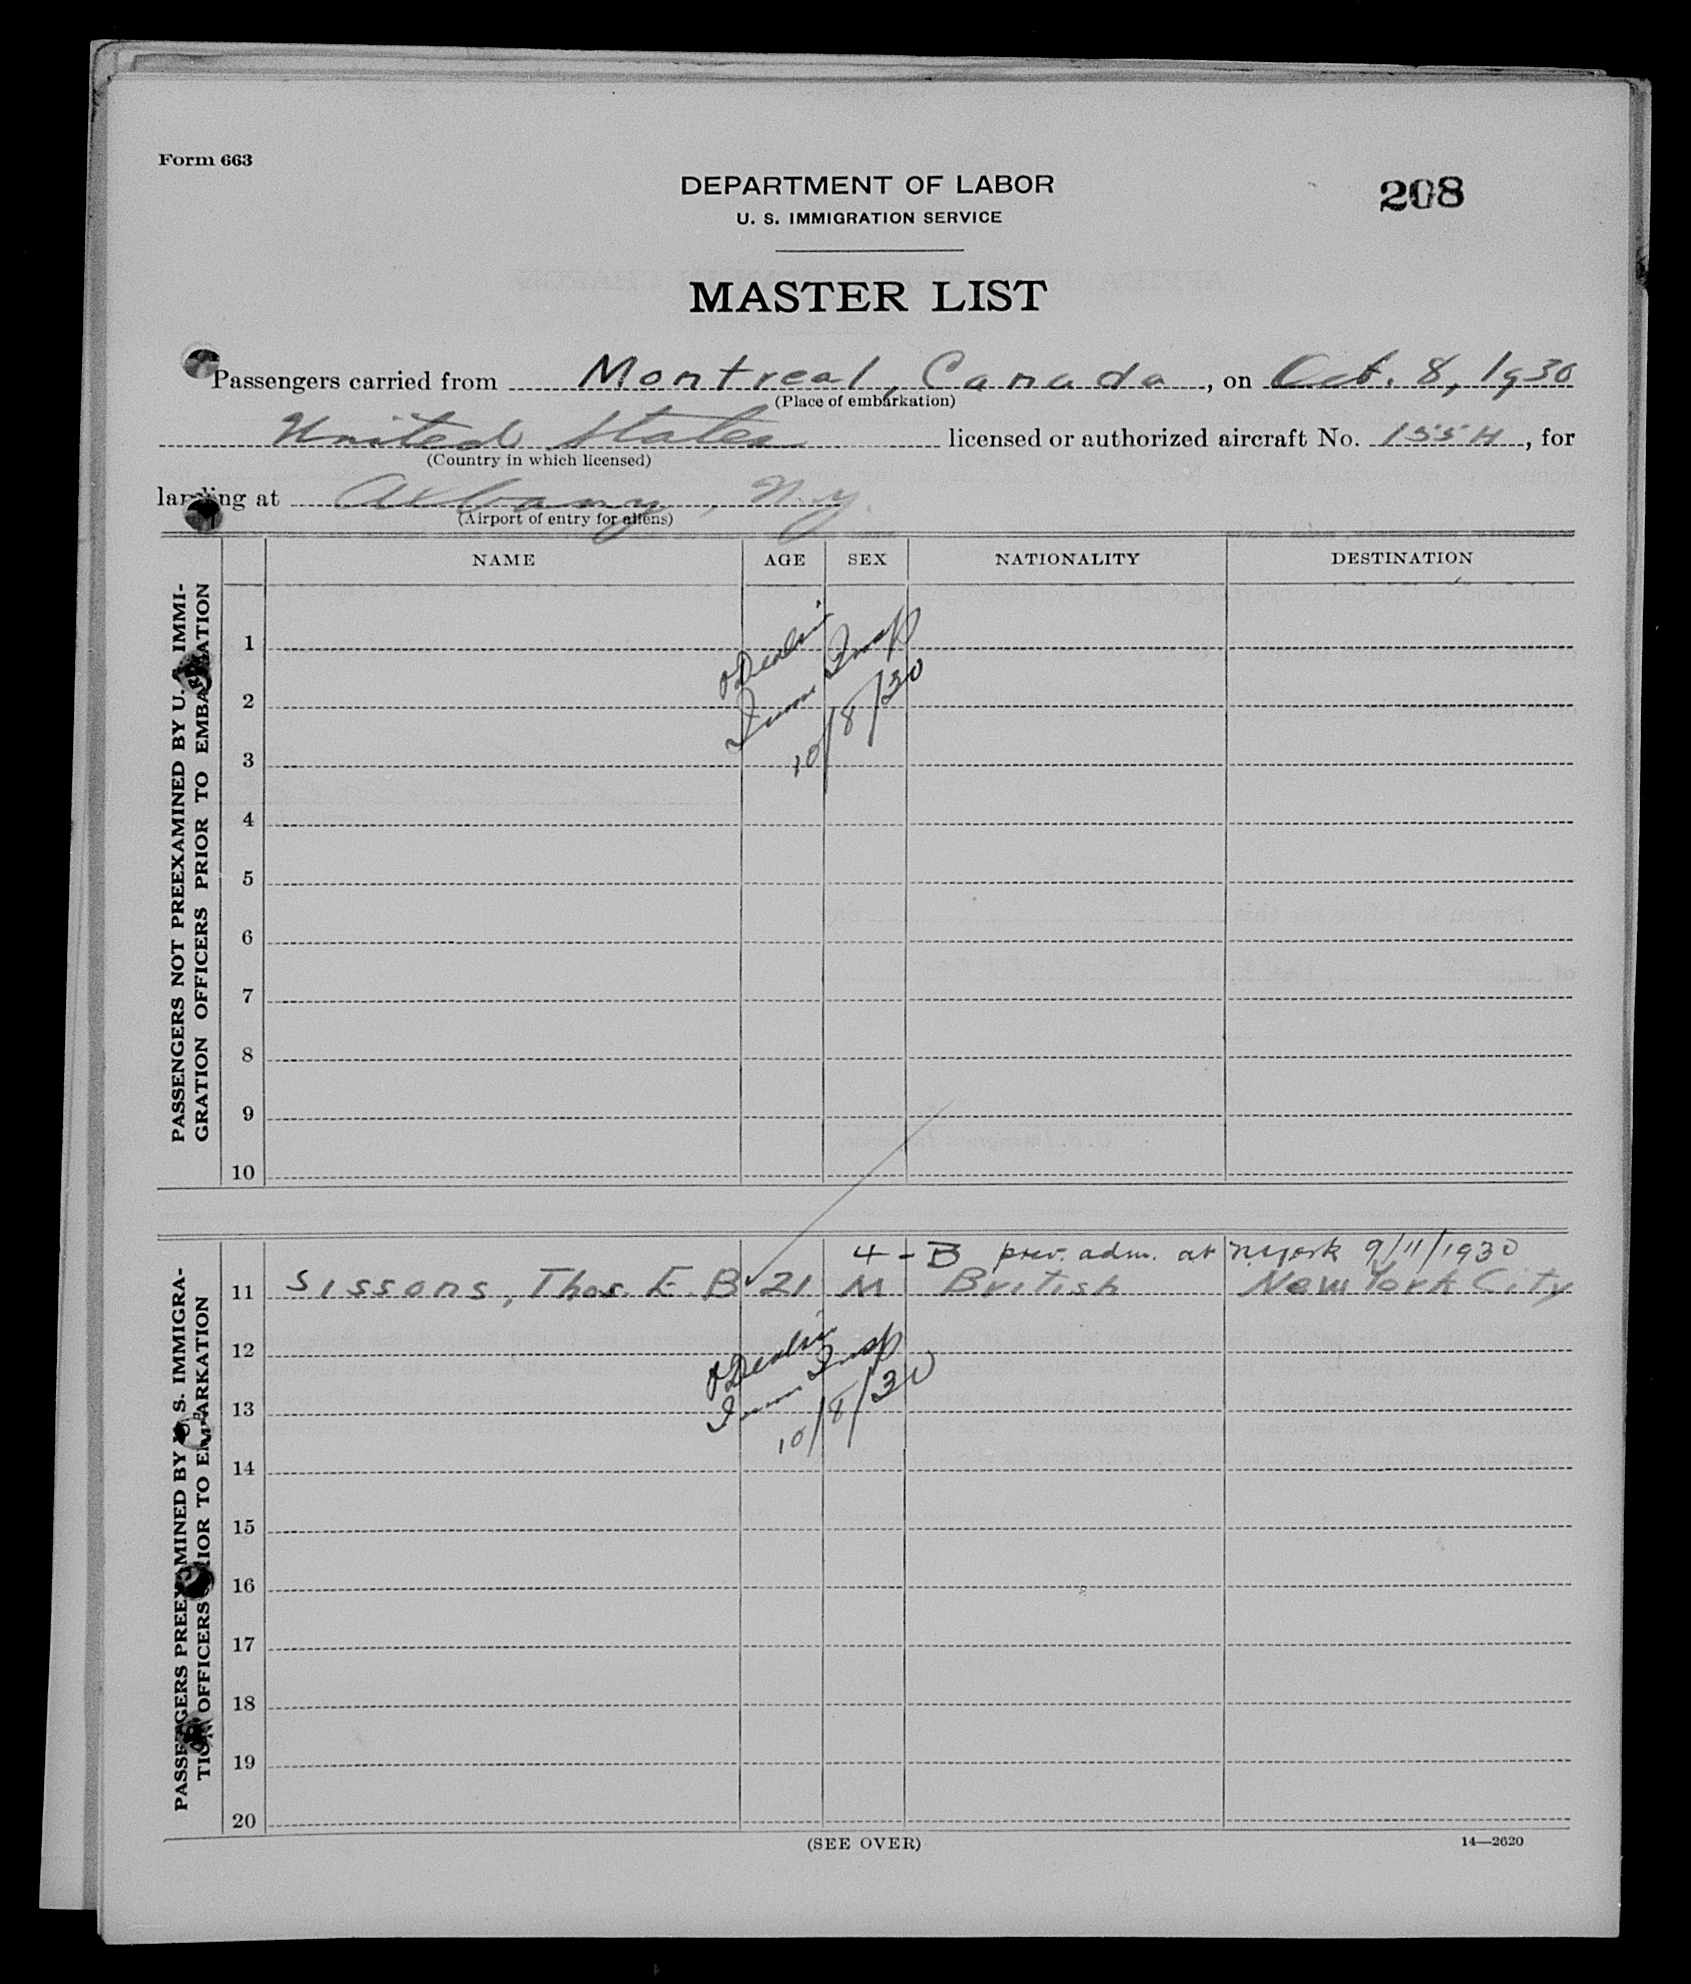 Form 663
DEPARTMENT OF LABOR
208
U. S. IMMIGRATION SERVICE
MASTER LIST
Passengers carried from Montreal, Canada, on Oct. 8, 1930
(Place of embarkation)
United States licensed or authorized aircraft No. 155H, for
(Country in which licensed)
landing at Albany, N.Y.
(Airport of entry for aliens)
NAME AGE SEX NATIONALITY DESTINATION
PASSENGERS NOT PREEXAMINED BY U. S. IMMI-
GRATION OFFICERS PRIOR TO EMBARKATION
1
2
Imm Insp
3
10/8/30
4
5
6
7
8
9
10
PASSENGERS PREEXAMINED BY U. S. IMMIGRA-
TION OFFICERS PRIOR TO EMBARKATION
4-B prev. adm. at N.York 9/11/1930
11 Sissons, Thos. E. B ✓ 21 M British New York City
12
13
Imm Insp
10/8/30
14
15
16
17
18
19
20
(SEE OVER)
14—2620